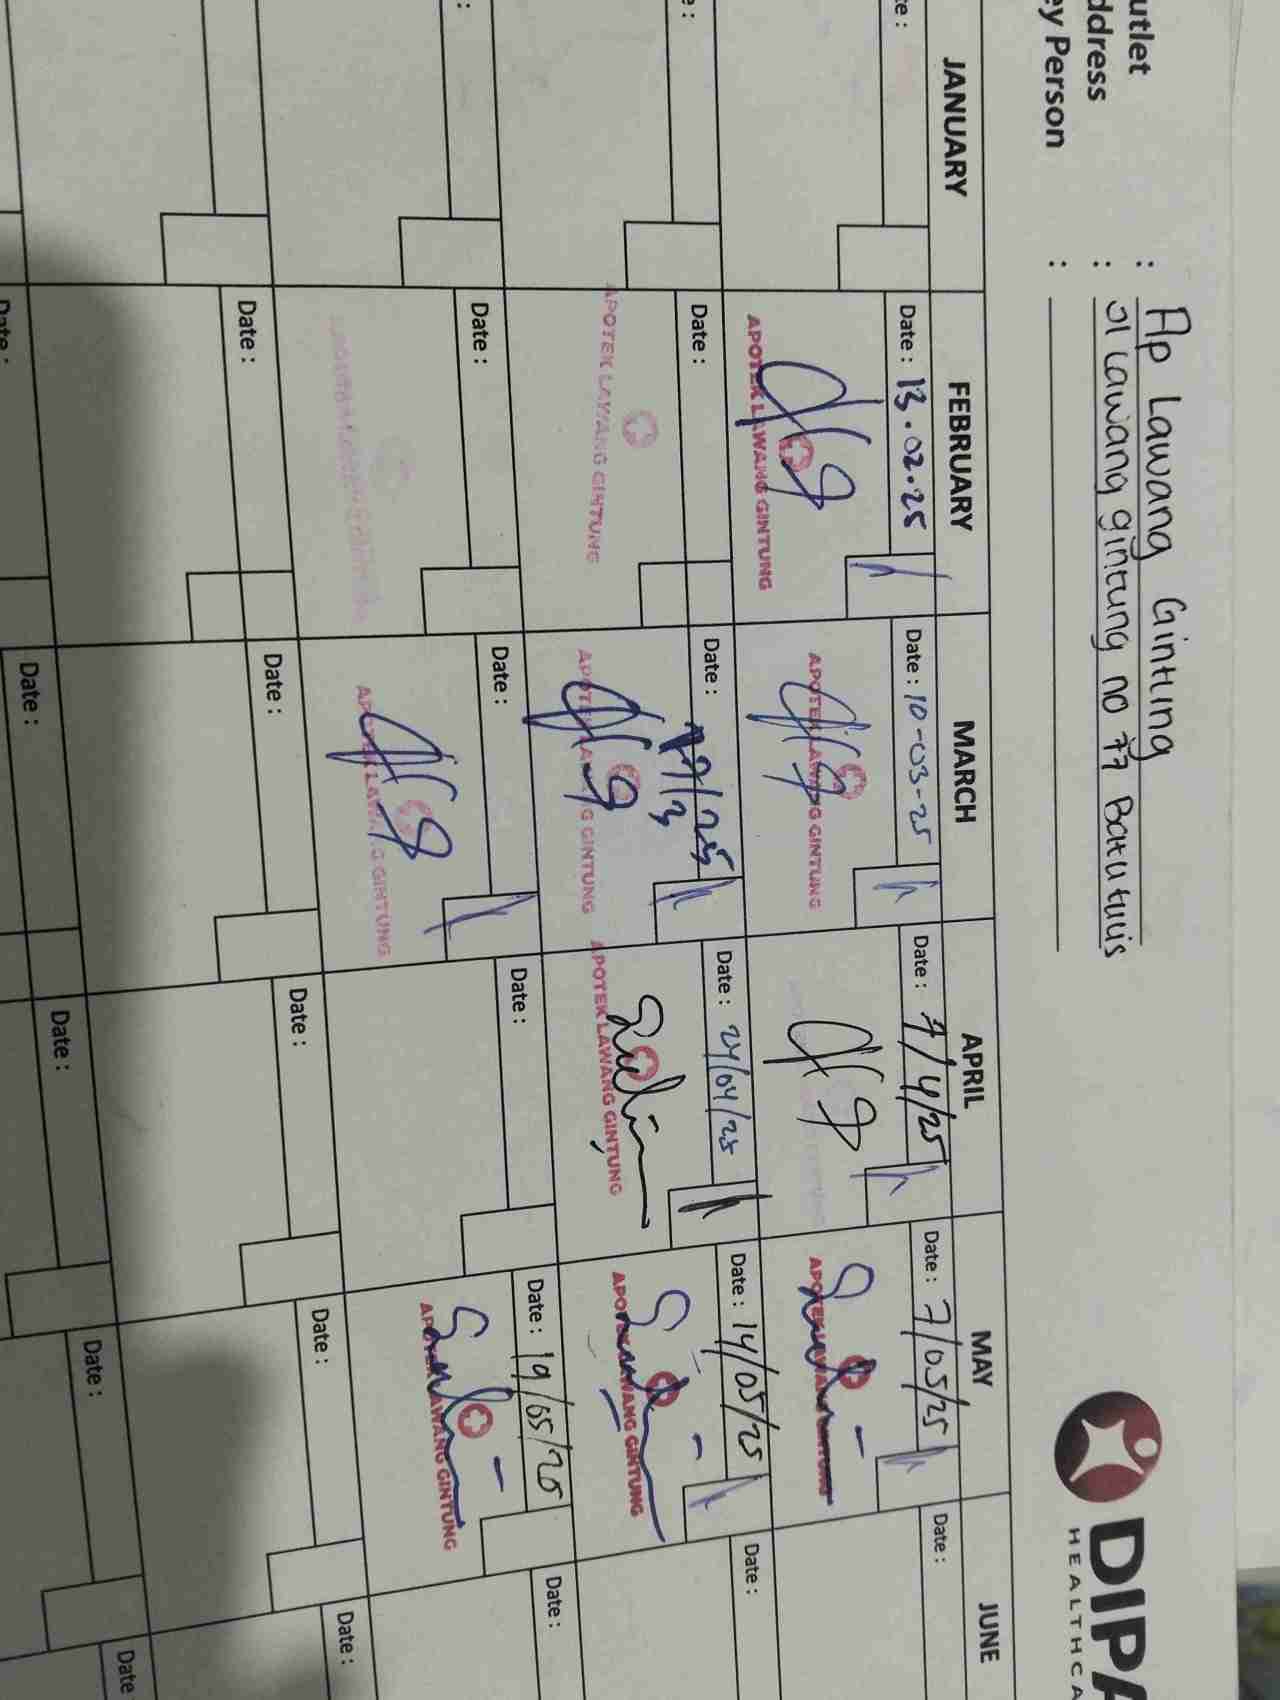 utlet : Ap Lawang Gintung
ddress : Jl Lawang gintung no 77 Batutulis
ey Person :
DIPA
HEALTHCA
JANUARY FEBRUARY MARCH APRIL MAY JUNE
te : Date : 13.02.25 Date : 10-03-25 Date : 7/4/25 Date : 7/05/25 Date :
APOTEK LAWANG GINTUNG APOTEK LAWANG GINTUNG APOTEK LAWANG GINTUNG
e : Date : Date : 19/3/25 Date : 24/04/25 Date : 14/05/25 Date :
APOTEK LAWANG GINTUNG APOTEK LAWANG GINTUNG APOTEK LAWANG GINTUNG APOTEK LAWANG GINTUNG
: Date : Date : Date : Date : 19/05/25 Date :
APOTEK LAWANG GINTUNG APOTEK LAWANG GINTUNG
Date : Date : Date : Date : Date :
Date : Date : Date : Date : Date